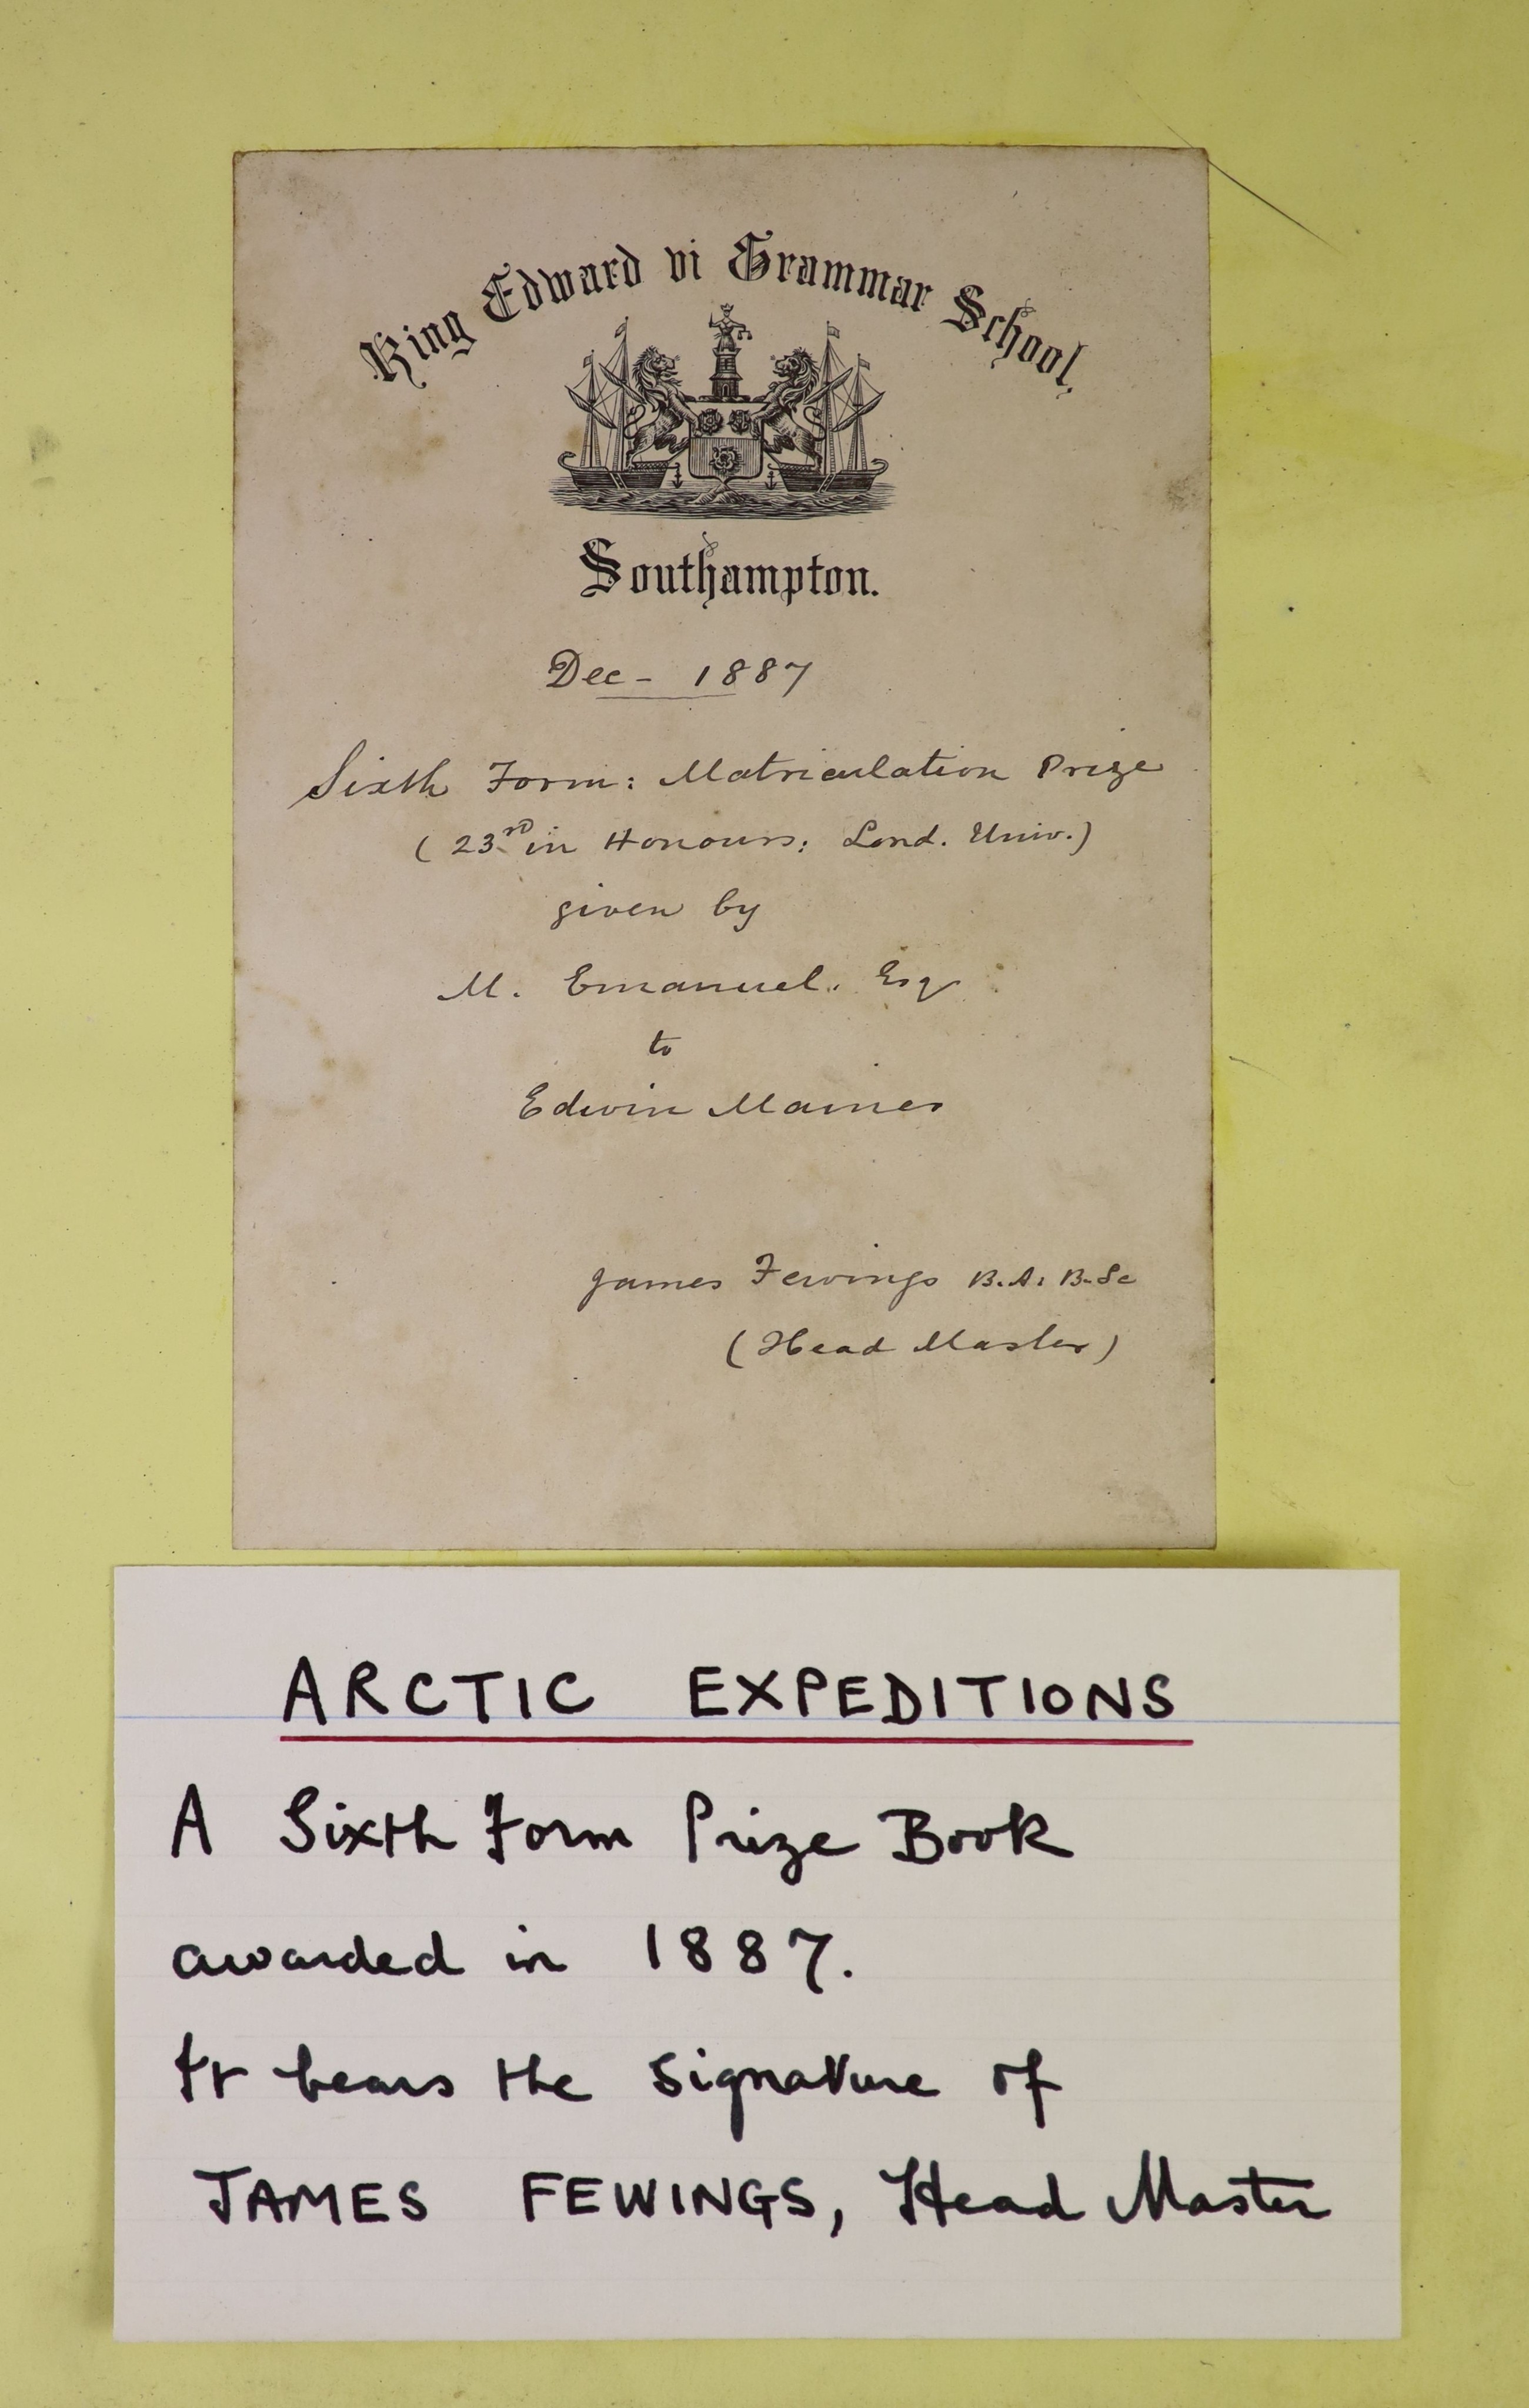 King Edward vi Grammar School,
Southampton.
Dec - 1887
Sixth Form: Matriculation Prize
(23rd in Honours: Lond. Univ.)
given by
M. Emanuel. Esq
to
Edwin Maines
James Fewings B.A: B.Sc
(Head Master)
ARCTIC EXPEDITIONS
A Sixth Form Prize Book
awarded in 1887.
It bears the signature of
JAMES FEWINGS, Head Master